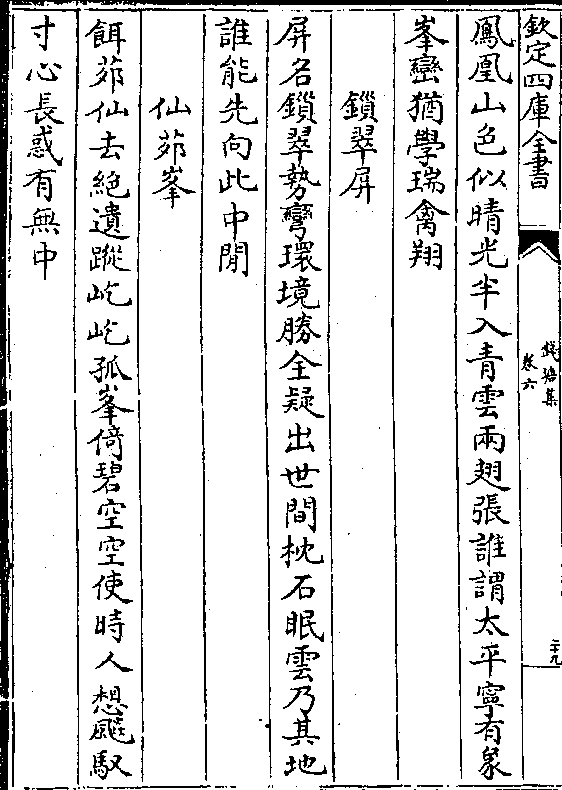 欽定四庫全書
錢塘集
卷六
二十九
鳳凰山色似晴光半入青雲兩翅張誰謂太平寧有象
峯巒猶學瑞禽翔
鎖翠屏
屏名鎖翠勢彎環境勝全疑出世間枕石眠雲乃其地
誰能先向此中閒
仙茆峯
餌茆仙去絶遺蹤屹屹孤峯倚碧空空使時人想飈馭
寸心長惑有無中